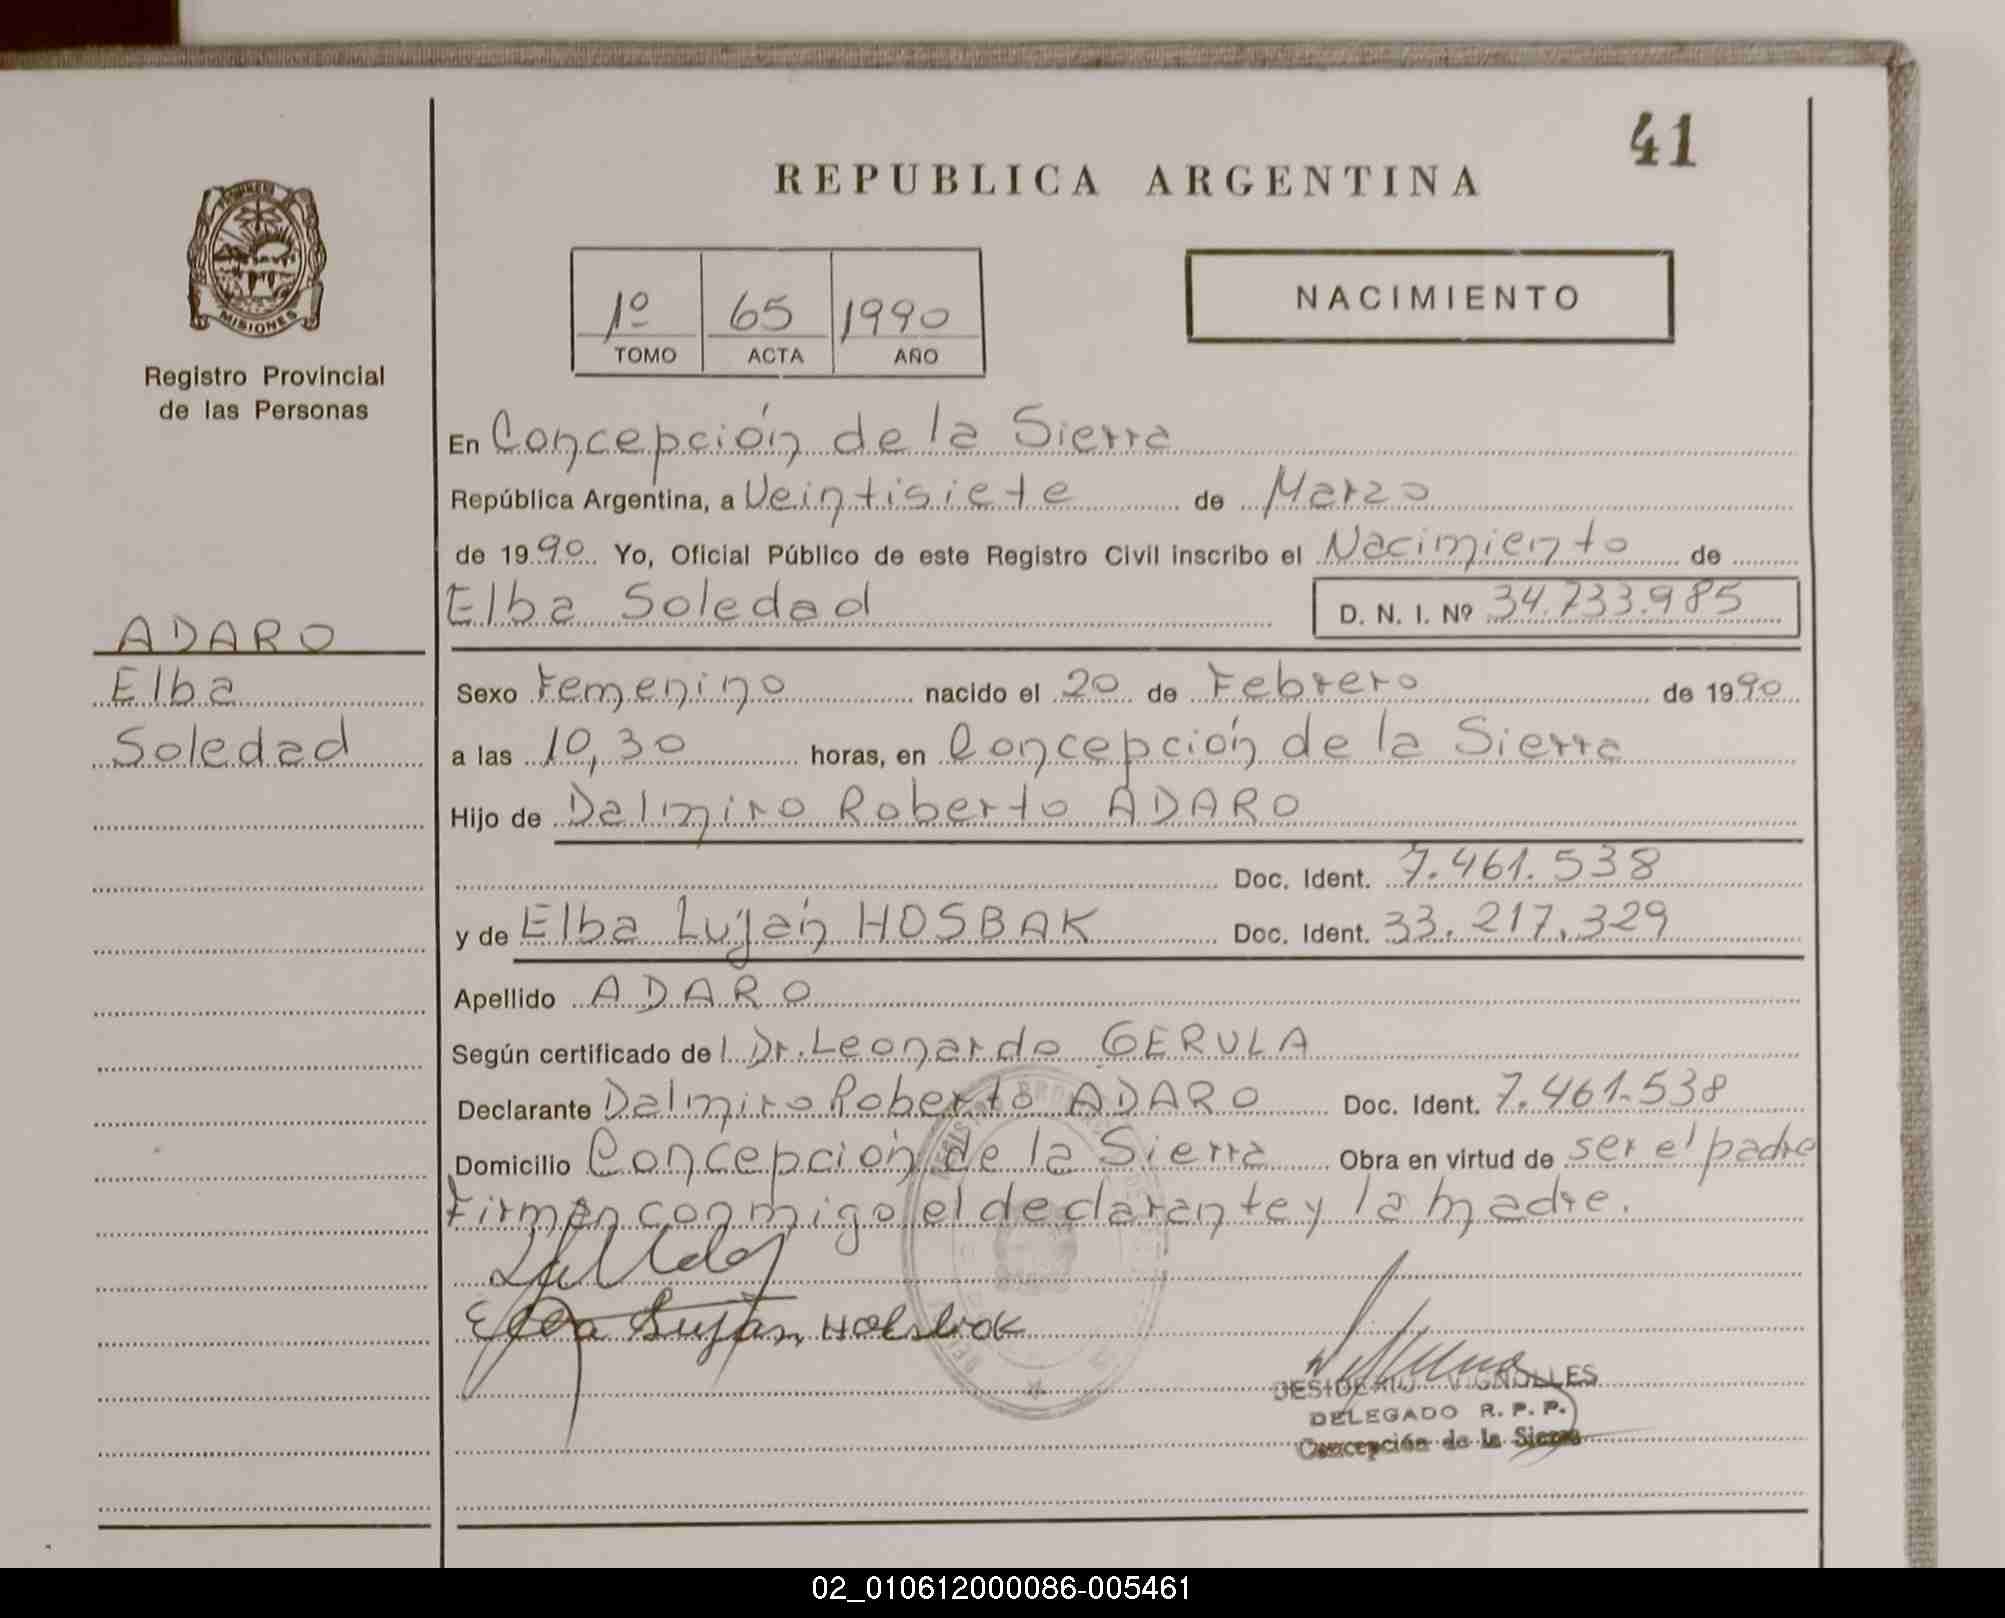 41
REPUBLICA ARGENTINA
MISIONES
Registro Provincial
de las Personas
1º 65 1990
TOMO ACTA AÑO
NACIMIENTO
En Concepción de la Sierra
República Argentina, a Veintisiete de Marzo
de 1990 Yo, Oficial Público de este Registro Civil inscribo el Nacimiento de
Elba Soledad D. N. I. Nº 34.733.985
ADARO
Elba
Soledad
Sexo Femenino nacido el 20 de Febrero de 1990
a las 10,30 horas, en Concepción de la Sierra
Hijo de Dalmiro Roberto ADARO
Doc. Ident. 7.461.538
y de Elba Luján HOSBAK Doc. Ident. 33.217.329
Apellido ADARO
Según certificado de l Dr. Leonardo GERULA
Declarante Dalmiro Roberto ADARO Doc. Ident. 7.461.538
Domicilio Concepción de la Sierra Obra en virtud de ser el padre
Firman conmigo el declarante y la madre.
Elba Luján
DESIDERIO VIGNOLLES
DELEGADO R. P. P.
Concepción de la Sierra
02_010612000086-005461